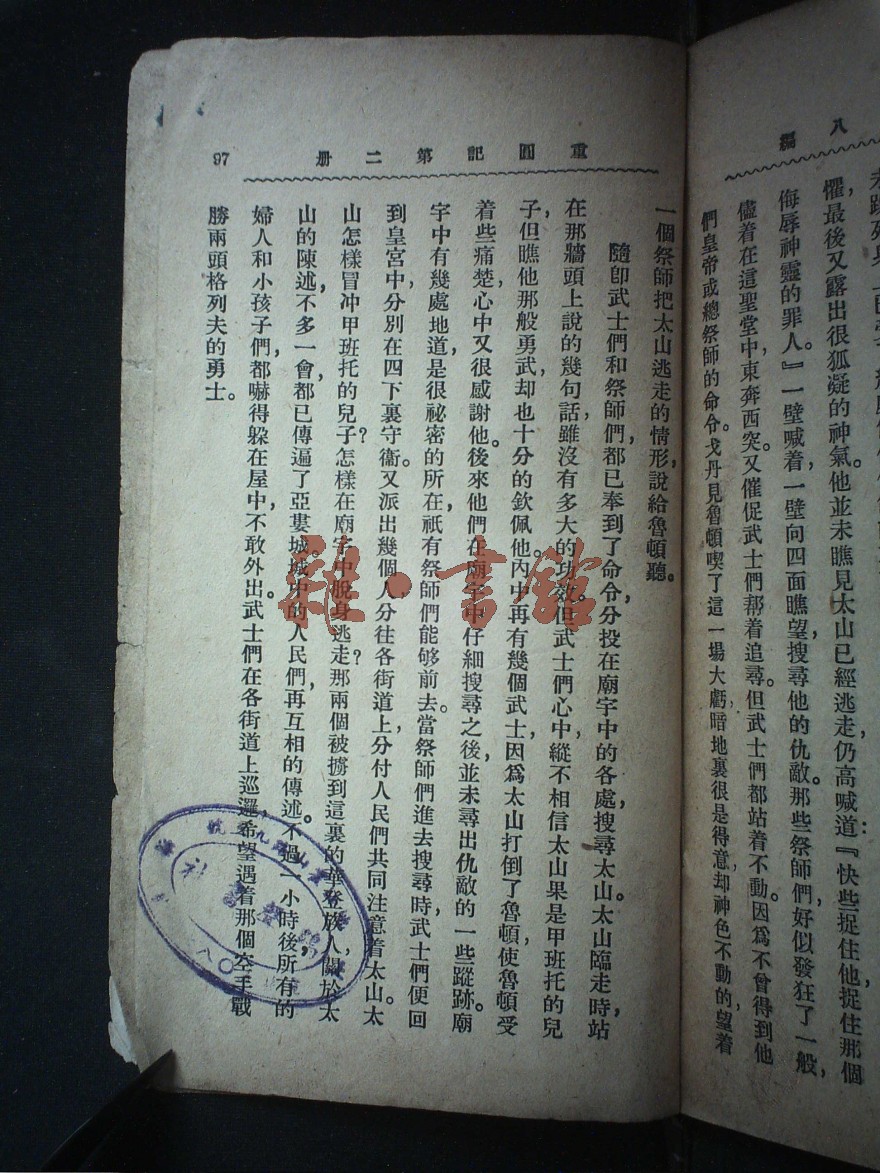 八編
懼，最後又露出很狐凝的神氣他並未瞧見太山已經逃走，仍高喊道：『快些捉住他，捉住那個
侮辱神靈的罪人。』一壁喊着，一壁向四面瞧望，搜尋他的仇敵。那些祭師們，好似發狂了一般，
儘着在這聖堂中，東奔西突。又催促武士們帮着追尋。但武士們都站着不動。因爲不曾得到他
們皇帝或總祭師的命令。戈丹見魯頓喫了這一場大虧，暗地裏很是得意，却神色不動的，望着
重圓記第二册
97
一個祭師把太山逃走的情形，說給魯頓聽。
隨卽武士們和祭師們，都已奉到了命令，分投在廟宇中的各處，搜尋太山。太山臨走時，站
在那牆頭上說的幾句話，雖沒有多大的功效。但武士們心中，縱不相信太山果是甲班托的兒
子，但瞧他那般勇武，却也十分的欽佩他。內中再有幾個武士，因爲太山打倒了魯頓，使魯頓受
着些痛楚，心中又很感謝他。後來他們在廟宇中仔細搜尋之後，並未尋出仇敵的一些蹤跡。廟
宇中有幾處地道，是很祕密的所在，祇有祭師們能够前去。當祭師們進去搜尋時，武士們便回
到皇宮中，分別在四下裏守衞。又派出幾個人，分往各街道上，分付人民們，共同注意着太山。太
山怎樣冒冲甲班托的兒子？怎樣在廟宇中脫身逃走？那兩個被擄到這裏的華登族人，關於太
山的陳述，不多一會，都已傳遍了亞婁城。城中的人民們，再互相的傳述，不過一小時後，所有的
婦人和小孩子們，都嚇得躲在屋中，不敢外出。武士們在各街道上巡邏，希望遇着那個空手戰
勝兩頭格列夫的勇士。
雜·書館